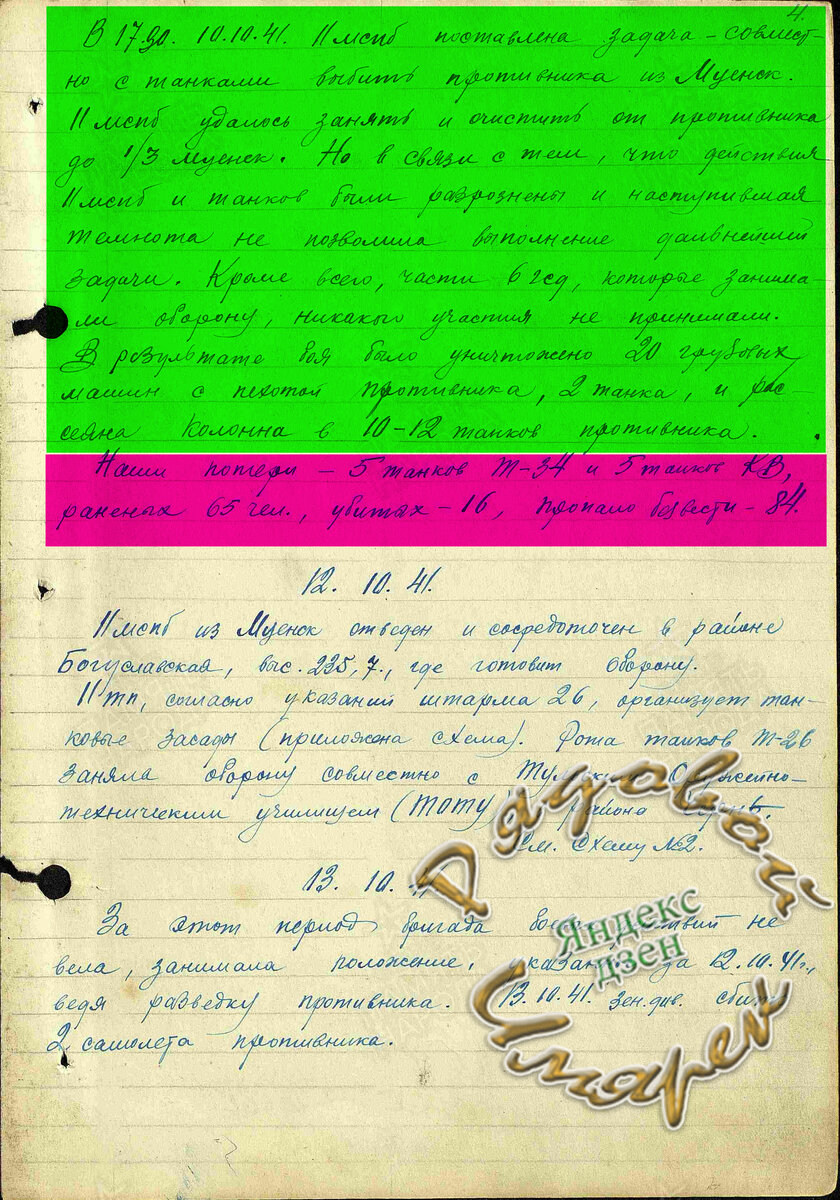 4.
В 17.30. 10.10.41. 11 мспб поставлена задача – совмест-
но с танками выбить противника из Мценск.
11 мспб удалось занять и очистить от противника
до 1/3 Мценск. Но в связи с тем, что действия
11 мспб и танков были разрознены и наступившая
темнота не позволила выполнение дальнейшей
задачи. Кроме всего, части 6 гсд, которые занима-
ли оборону, никакого участия не принимали.
В результате боя было уничтожено 20 грузовых
машин с пехотой противника, 2 танка, и рас-
сеяна колонна в 10–12 танков противника.
Наши потери – 5 танков Т-34 и 5 танков КВ,
раненых 65 чел., убитых – 16, пропало безвести – 84.
12. 10. 41.
11 мспб из Мценск отведен и сосредоточен в районе
Богуславская, выс. 235,7., где готовит оборону.
11 тп, согласно указаний штарма 26, организует тан-
ковые засады (приложена схема). Рота танков Т-26
заняла оборону совместно с Тульским Оружейно-
техническим училищем (ТОТУ) районе
См. Схему №2.
13. 10.
За этот период бригада не
вела, занимала положение, за 12.10.41г.,
ведя разведку противника. 13.10.41. зен.див. сбит
2 самолета противника.
Рядовой
Яндекс
дзен
Имярек